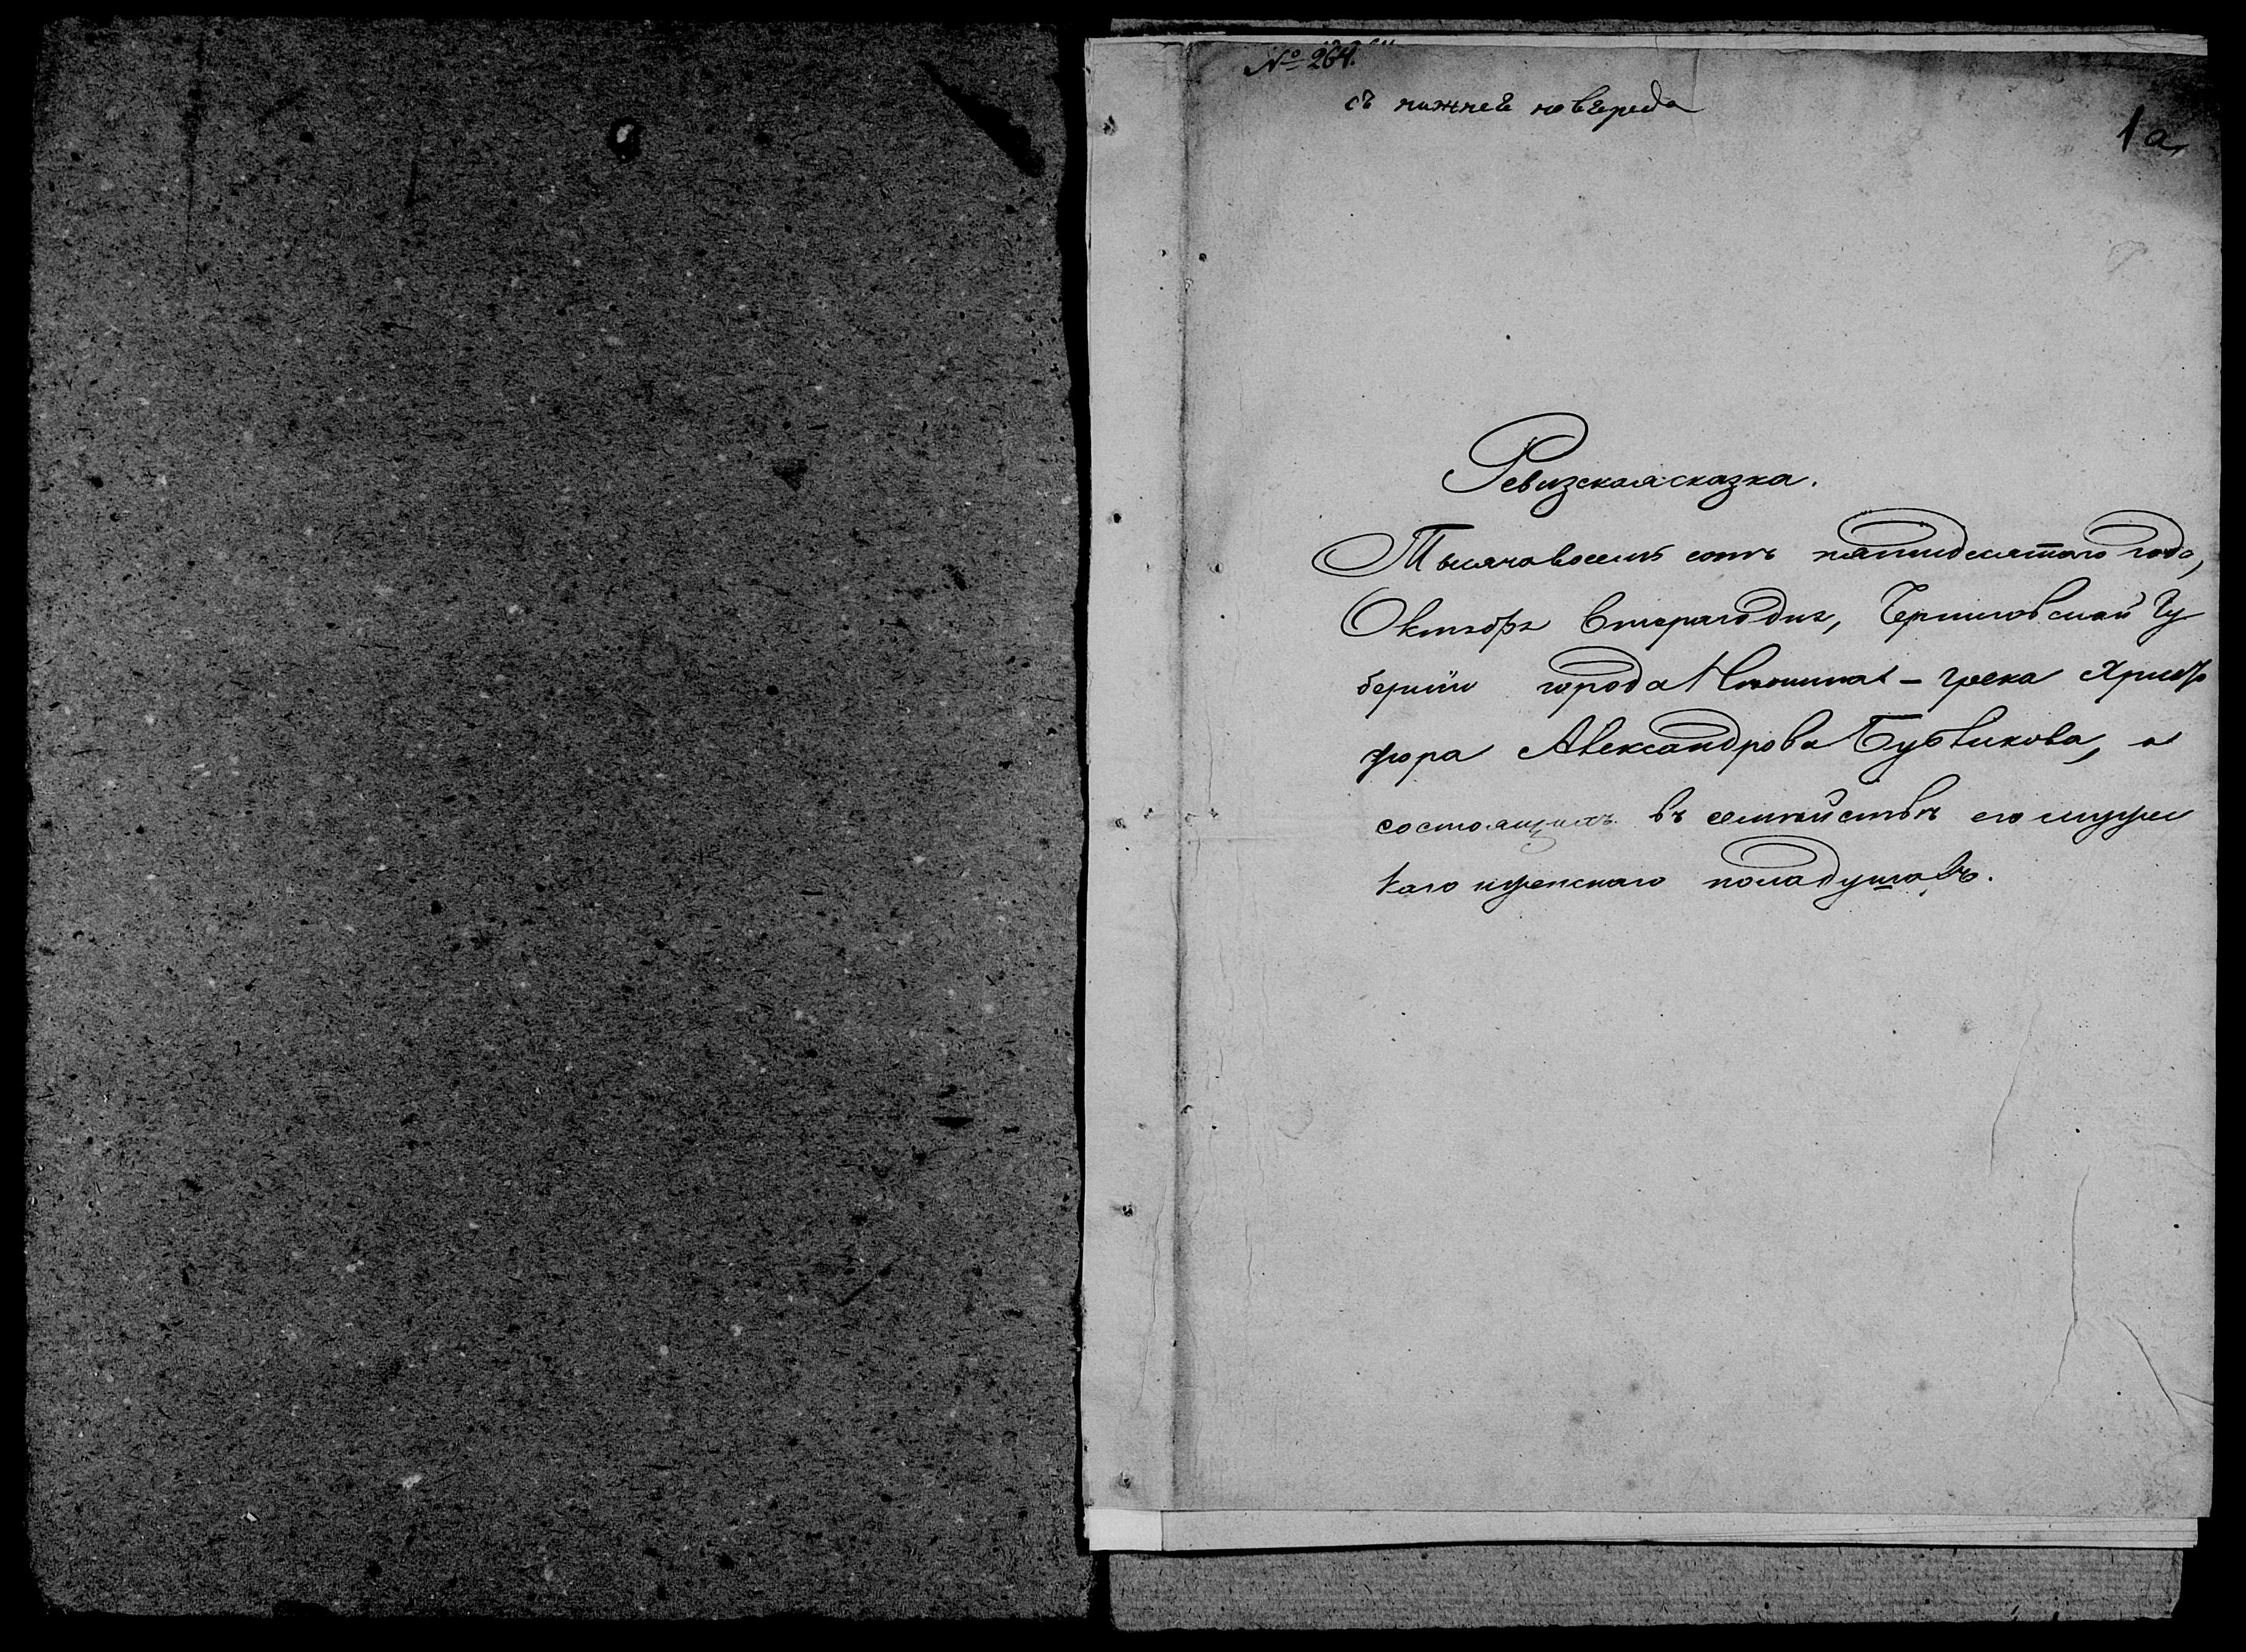 № 264.
съ нижней
1а
Ревизская сказка.
Тысяча восемь сотъ пятидесятого года,
Октября втораго дня, Черниговской Гу
берніи города Нежина – грека Христо
фора Александрова Бубликова, и
состоящихъ въ семействѣ его мужес
каго и женскаго пола душахъ.